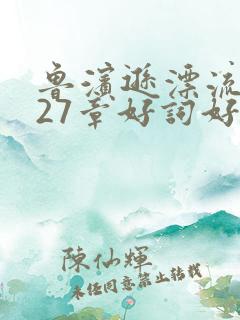 魯濱遜漂流
27章好詞好
陳仙輝
未經同意禁止轉載